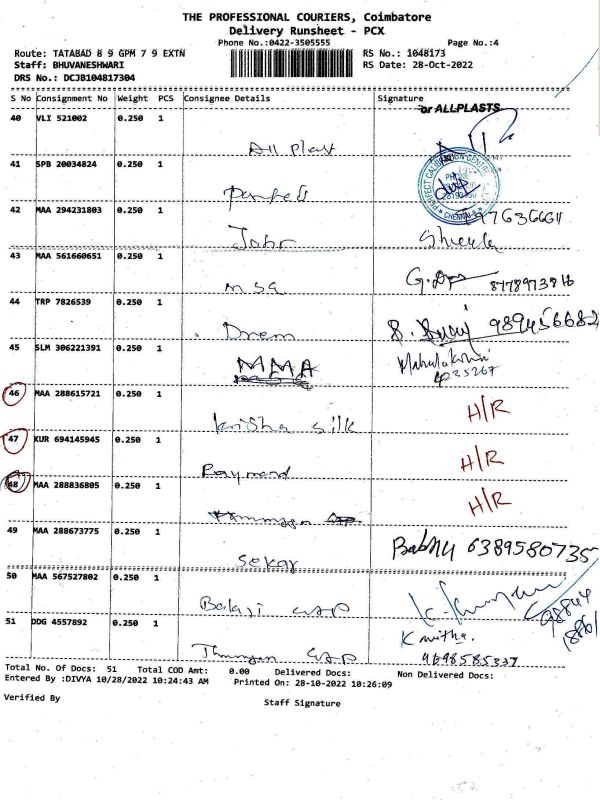 THE PROFESSIONAL COURIERS, Coimbatore
Delivery Runsheet - PCX
Phone No.:0422-3505555 Page No.:4
Route: TATABAD 8 9 GPM 7 9 EXTN RS No.: 1048173
Staff: BHUVANESHWARI RS Date: 28-Oct-2022
DRS No.: DCJB104817304
S No Consignment No Weight PCS Consignee Details Signature
or ALLPLASTS
40 VLI 521002 0.250 1
All Plast
41 SPB 20034824 0.250 1
PERFECT CALIBRATION CENTRE
CHENNAI
42 MAA 294231803 0.250 1
43 MAA 561660651 0.250 1
44 TRP 7826539 0.250 1
Drem
45 SLM 306221391 0.250 1
MMA
46 MAA 288615721 0.250 1
silk H/R
47 KUR 694145945 0.250 1
Raymond H/R
48 MAA 288836805 0.250 1
H/R
49 MAA 288673775 0.250 1
Sekar 6389580735
50 MAA 567527802 0.250 1
Balaji
51 DDG 4557892 0.250 1
Kavitha.
9698585337
Total No. Of Docs: 51 Total COD Amt: 0.00 Delivered Docs: Non Delivered Docs:
Entered By :DIVYA 10/28/2022 10:24:43 AM Printed On: 28-10-2022 10:26:09
Verified By Staff Signature